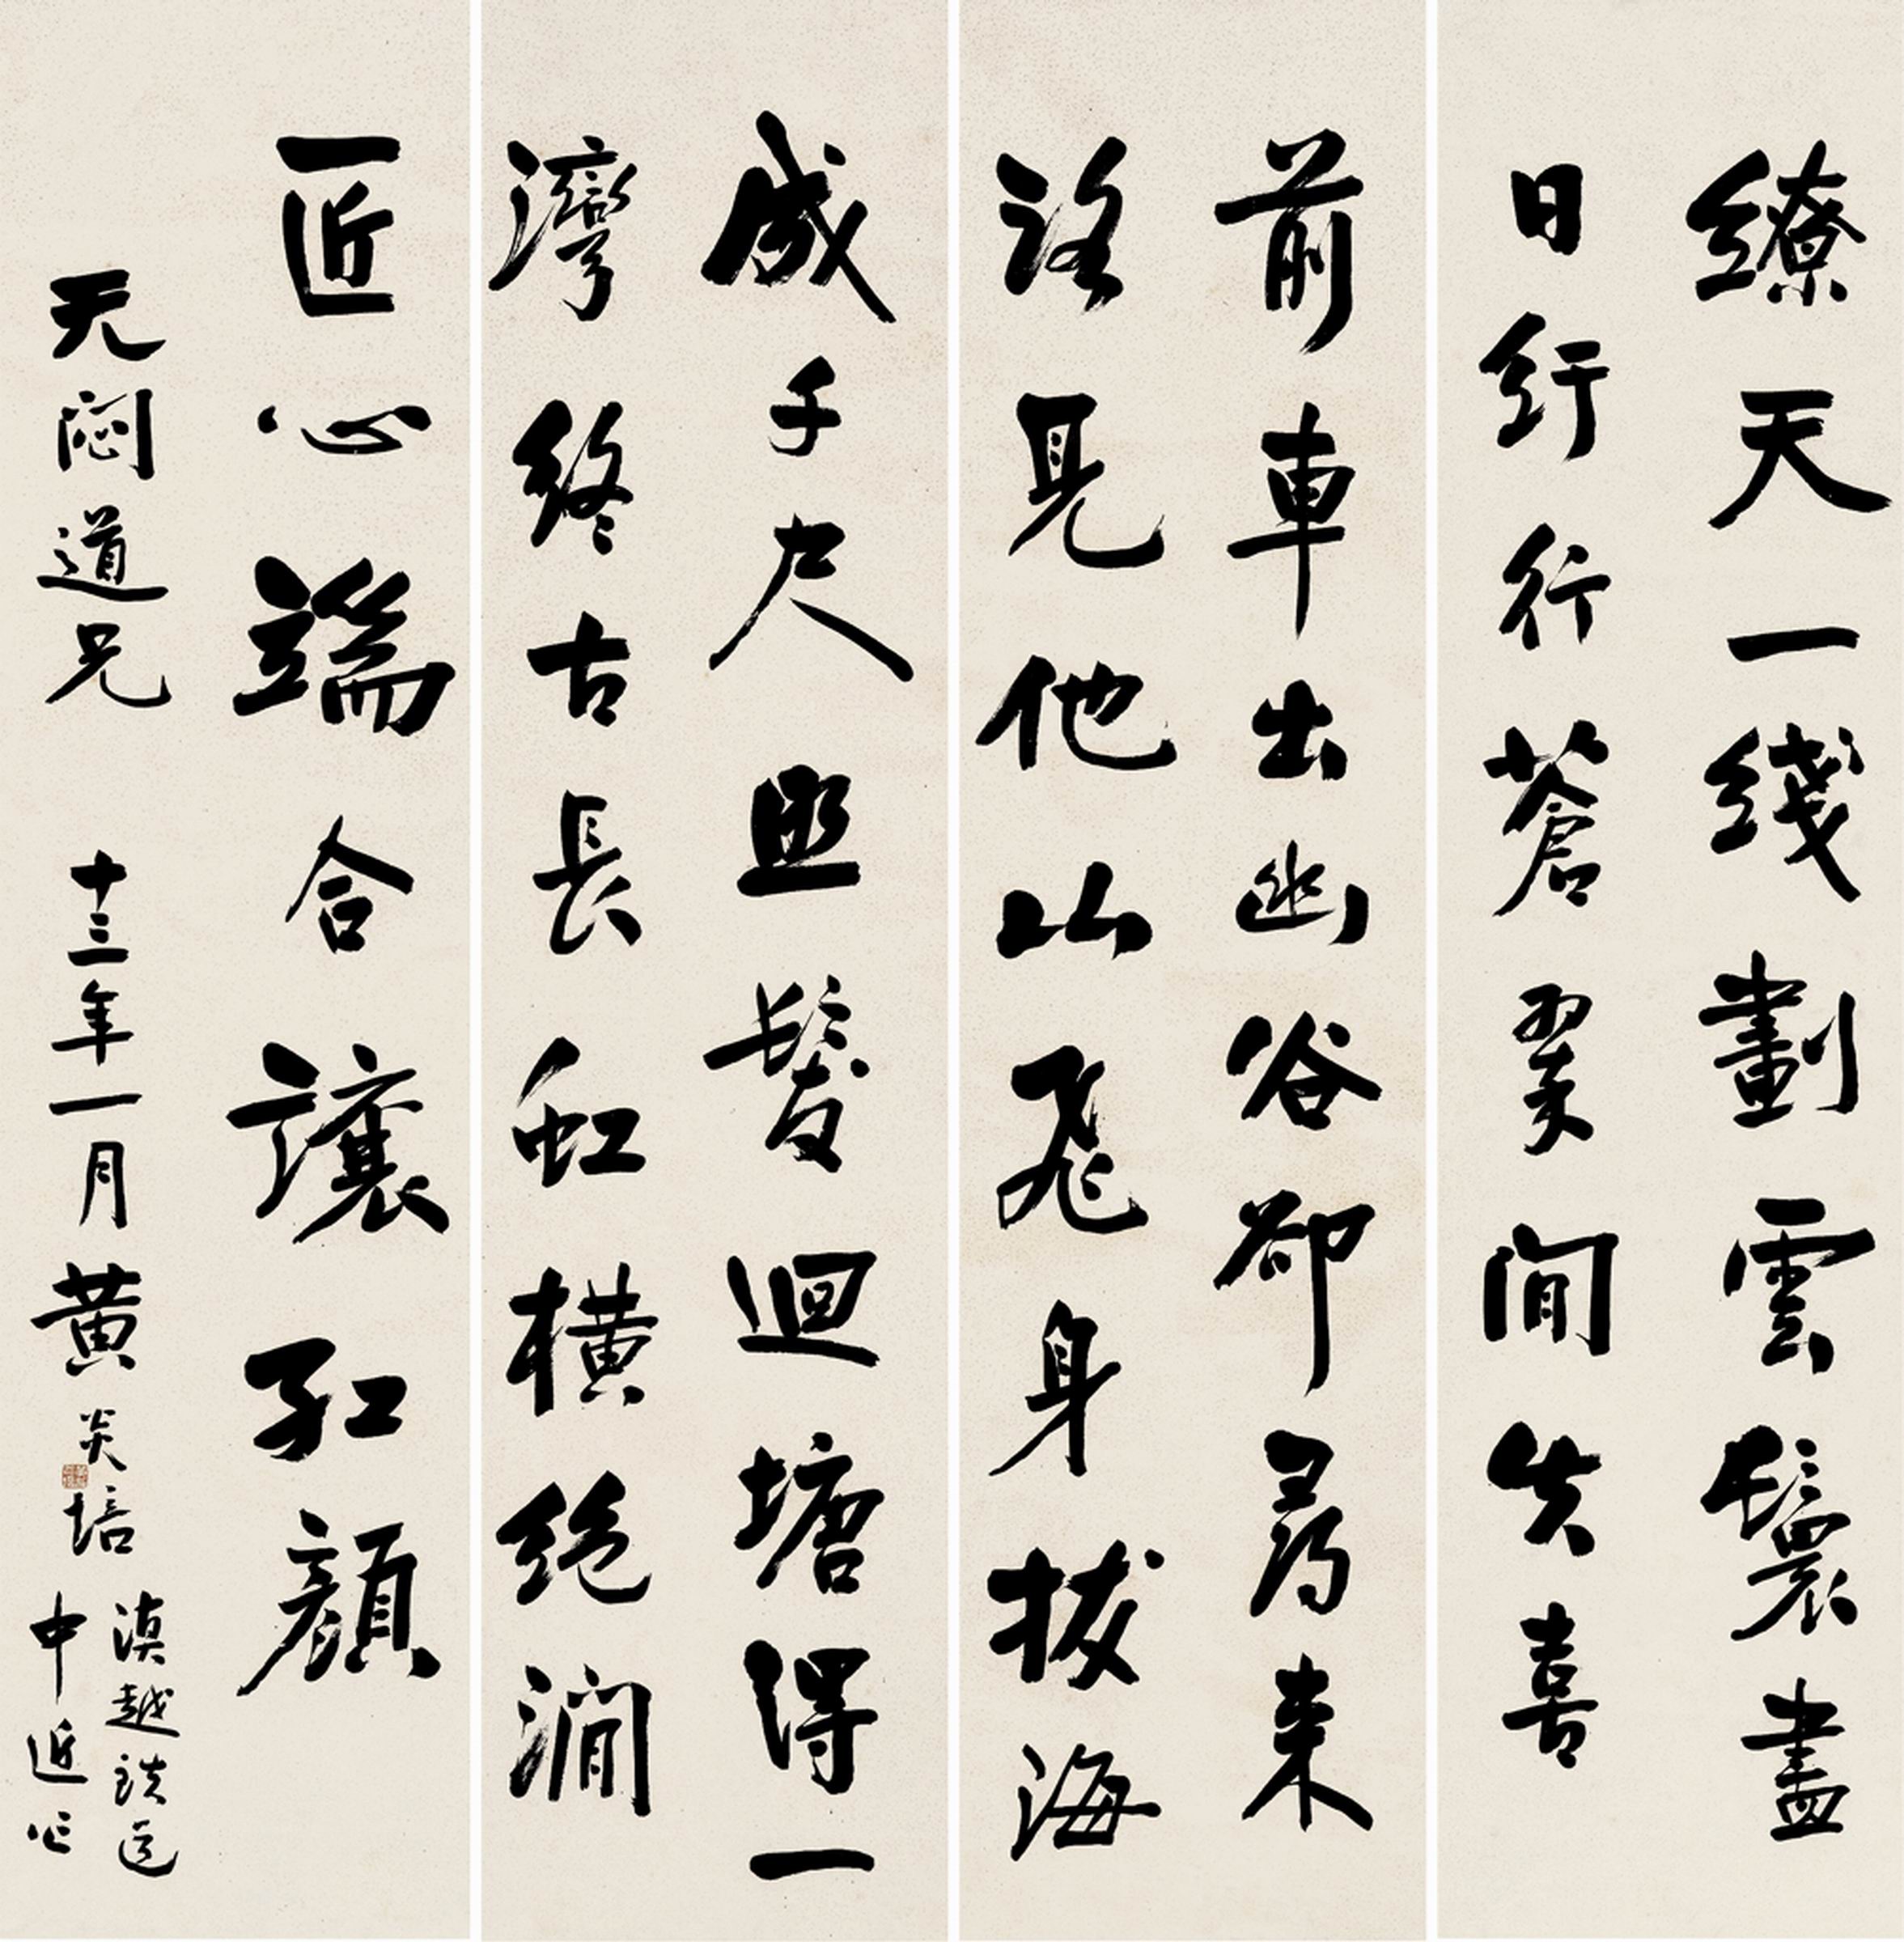 繚天一綫劃雲鬟盡
日紆行行蒼翠間失喜
前車出幽谷卻尋來
路見他山飛身拔海
成千尺照鬢迴塘得一
灣終古長虹橫絕澗
匠心端合讓紅顏
天悶道兄
十三年一月黃炎培
滇越鉄道
中近作